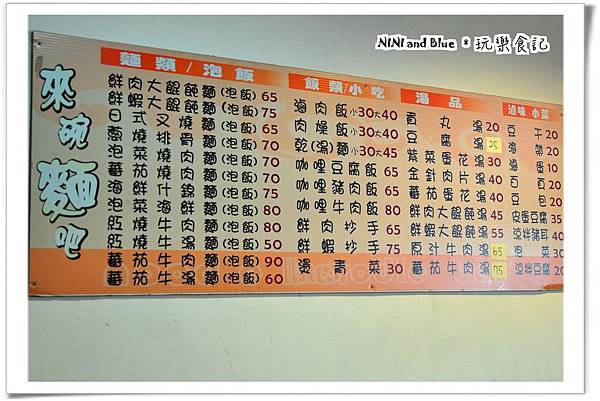 NiNi and Blue * 玩樂食記
來碗麵吧
麵類/泡飯
鮮肉大餛飩麵(泡飯) 65
鮮蝦大餛飩麵(泡飯) 75
日式叉燒麵(泡飯) 65
蔥燒排骨麵(泡飯) 70
泡菜燒肉麵(泡飯) 70
番茄燒肉麵(泡飯) 70
海鮮什錦麵(泡飯) 75
泡菜海鮮麵(泡飯) 80
紅燒牛肉麵(泡飯) 80
紅燒牛湯麵(泡飯) 50
蕃茄牛肉麵(泡飯) 90
蕃茄牛湯麵(泡飯) 60
飯類/小吃
滷肉飯小30大40
肉燥飯小30大40
乾(湯)麵小30大45
咖哩豆腐飯 65
咖哩豬肉飯 65
咖哩牛肉飯 80
鮮肉抄手 65
鮮蝦抄手 75
燙青菜 30
湯品
貢丸湯 20
豆腐湯 25
紫菜蛋花湯 30
金針肉片湯 40
蕃茄蛋花湯 40
鮮肉大餛飩湯 45
鮮蝦大餛飩湯 55
原汁牛肉湯 65
蕃茄牛肉湯 75
滷味·小菜
豆干 20
海帶 20
滷蛋 10
百頁 20
豆包 20
皮蛋豆腐 35
涼拌豬耳 40
泡菜 30
涼拌豆腐 20